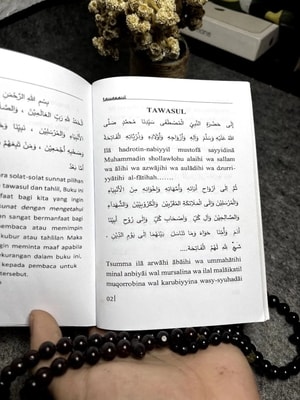 بِسْمِ اللهِ الرَّحْمٰنِ
اَلْحَمْدُ لِلّٰهِ رَبِّ الْعَالَمِيْنَ
الْأَنْبِيَاءِ وَالْمُرْسَلِيْنَ
وَصَحْبِهِ أَجْمَعِيْنَ
solat-solat sunnat pilihan
tawasul dan tahlil. Buku ini
bagi kita yang ingin
sunat dengan mengetahui
sangat bermanfaat bagi
pembaca atau memimpin
kubur atau tahlilan. Maka
ingin meminta maaf apabila
kurangan dalam buku ini,
kepada pembaca untuk
tersebut.
TAWASUL
إِلَى حَضْرَةِ النَّبِيِّ الْمُصْطَفَى سَيِّدِنَا مُحَمَّدٍ صَلَّى
اللهُ عَلَيْهِ وَسَلَّمَ وَآلِهِ وَأَزْوَاجِهِ وَأَوْلَادِهِ وَذُرِّيَّاتِهِ الْفَاتِحَةْ
Ilā hadrotin-nabiyyil mustofā sayyidinā
Muhammadin shollawlohu alaihi wa sallam
wa ālihi wa azwājihi wa aulādihi wa dzurri-
yyātihi al-fātihah......
ثُمَّ إِلَى أَرْوَاحِ آبَائِهِ وَأُمَّهَاتِهِ وَإِخْوَانِهِ مِنَ الْأَنْبِيَاءِ
وَالْمُرْسَلِيْنَ وَإِلَى الْمَلَائِكَةِ الْمُقَرَّبِيْنَ وَالْكَرُوْبِيِّيْنَ وَالشُّهَدَاءِ
وَالصَّالِحِيْنَ وَآلِ كُلٍّ وَأَصْحَابِ كُلٍّ وَإِلَى رُوْحِ أَبِيْنَا
آدَمَ وَأُمِّنَا حَوَّاءَ وَمَا تَنَاسَلَ بَيْنَهُمَا إِلَى يَوْمِ الدِّيْنِ .
شَيْئٌ لِلّٰهِ لَهُمُ الْفَاتِحَةْ....
Tsumma ilā arwāhi ābāihi wa ummahātihi
minal anbiyāi wal mursalina wa ilal malāikatil
muqorrobina wal karubiyyina wasy-syuhadāi
02|